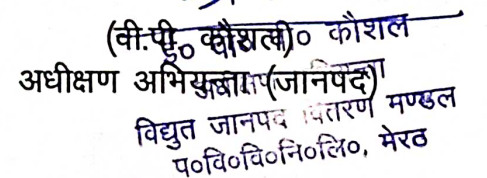 (वी.पी. कौशल)
वी० कौशल
अधीक्षण अभियन्ता (जानपद)
विद्युत जानपद वितरण मण्डल
प०वि०वि०नि०लि०, मेरठ